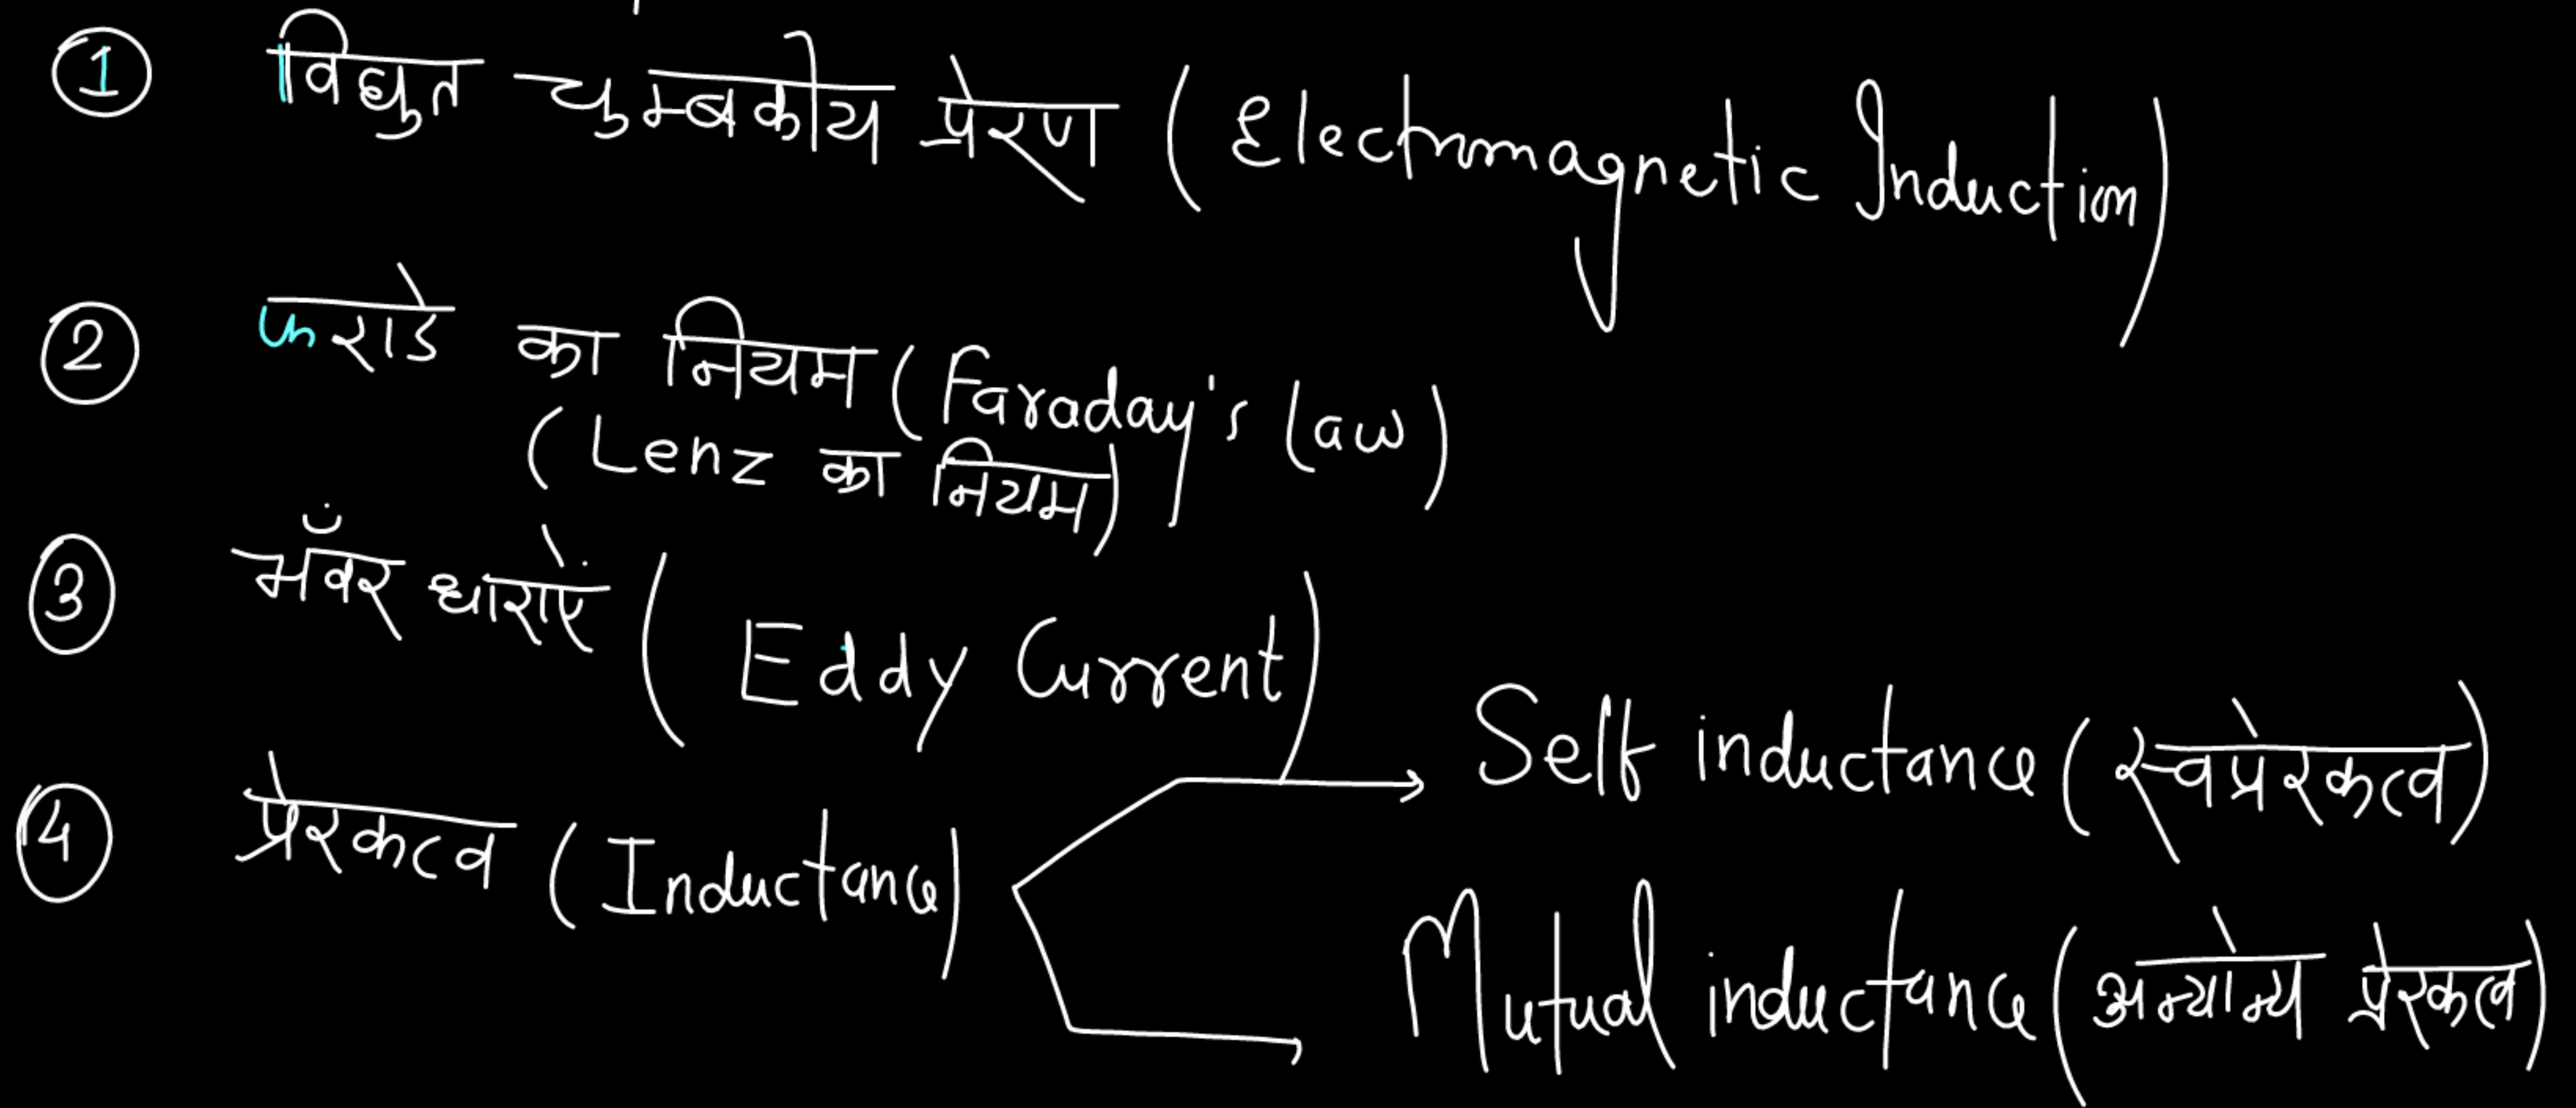 ① विद्युत चुम्बकीय प्रेरण (Electromagnetic Induction)
② फराडे का नियम (Faraday's law)
(Lenz का नियम)
③ भँवर धाराएं (Eddy Current)
④ प्रेरकत्व (Inductance)
Self inductance (स्वप्रेरकत्व)
Mutual inductance (अन्योन्य प्रेरकत्व)